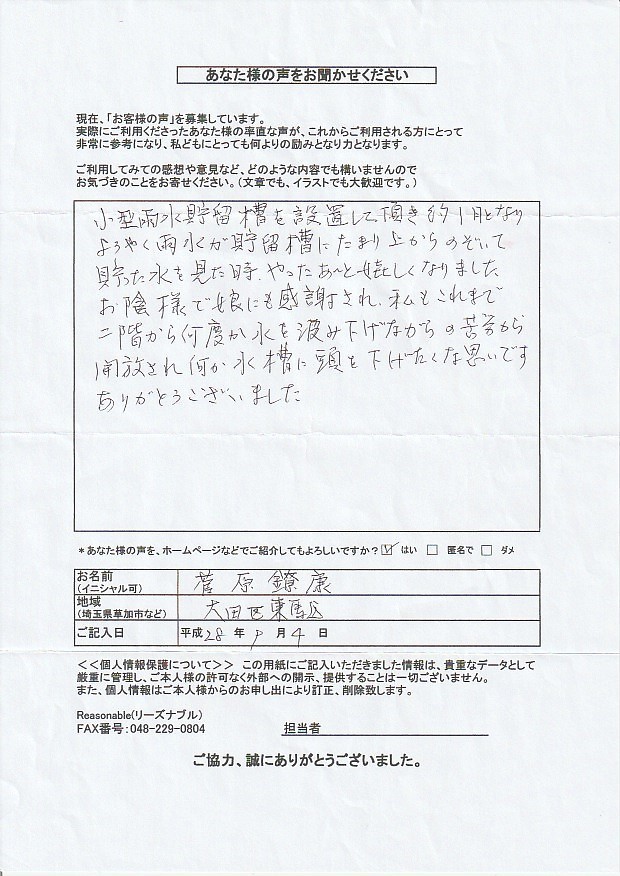 あなた様の声をお聞かせください
現在、「お客様の声」を募集しています。
実際にご利用くださったあなた様の率直な声が、これからご利用される方にとって
非常に参考になり、私どもにとっても何よりの励みとなり力となります。
ご利用してみての感想や意見など、どのような内容でも構いませんので
お気づきのことをお寄せください。（文章でも、イラストでも大歓迎です。）
小型雨水貯留槽を設置して頂き約1月となり
ようやく雨水が貯留槽にたまり上からのぞいて
貯った水を見た時、やったあ～と嬉しくなりました
お陰様で娘にも感謝され、私もこれまで
二階から何度か水を汲み下げながらの苦労から
開放され何か水槽に頭を下げたくな思いです
ありがとうございました
*あなた様の声を、ホームページなどでご紹介してもよろしいですか？ ☑ はい □ 匿名で □ ダメ
お名前
（イニシャル可）
菅原 鐐康
地域
（埼玉県草加市など）
大田区東馬込
ご記入日 平成28年9月4日
＜＜個人情報保護について＞＞ この用紙にご記入いただきました情報は、貴重なデータとして
厳重に管理し、ご本人様の許可なく外部への開示、提供することは一切ございません。
また、個人情報はご本人様からのお申し出により訂正、削除致します。
Reasonable(リーズナブル)
FAX番号：048-229-0804 担当者
ご協力、誠にありがとうございました。